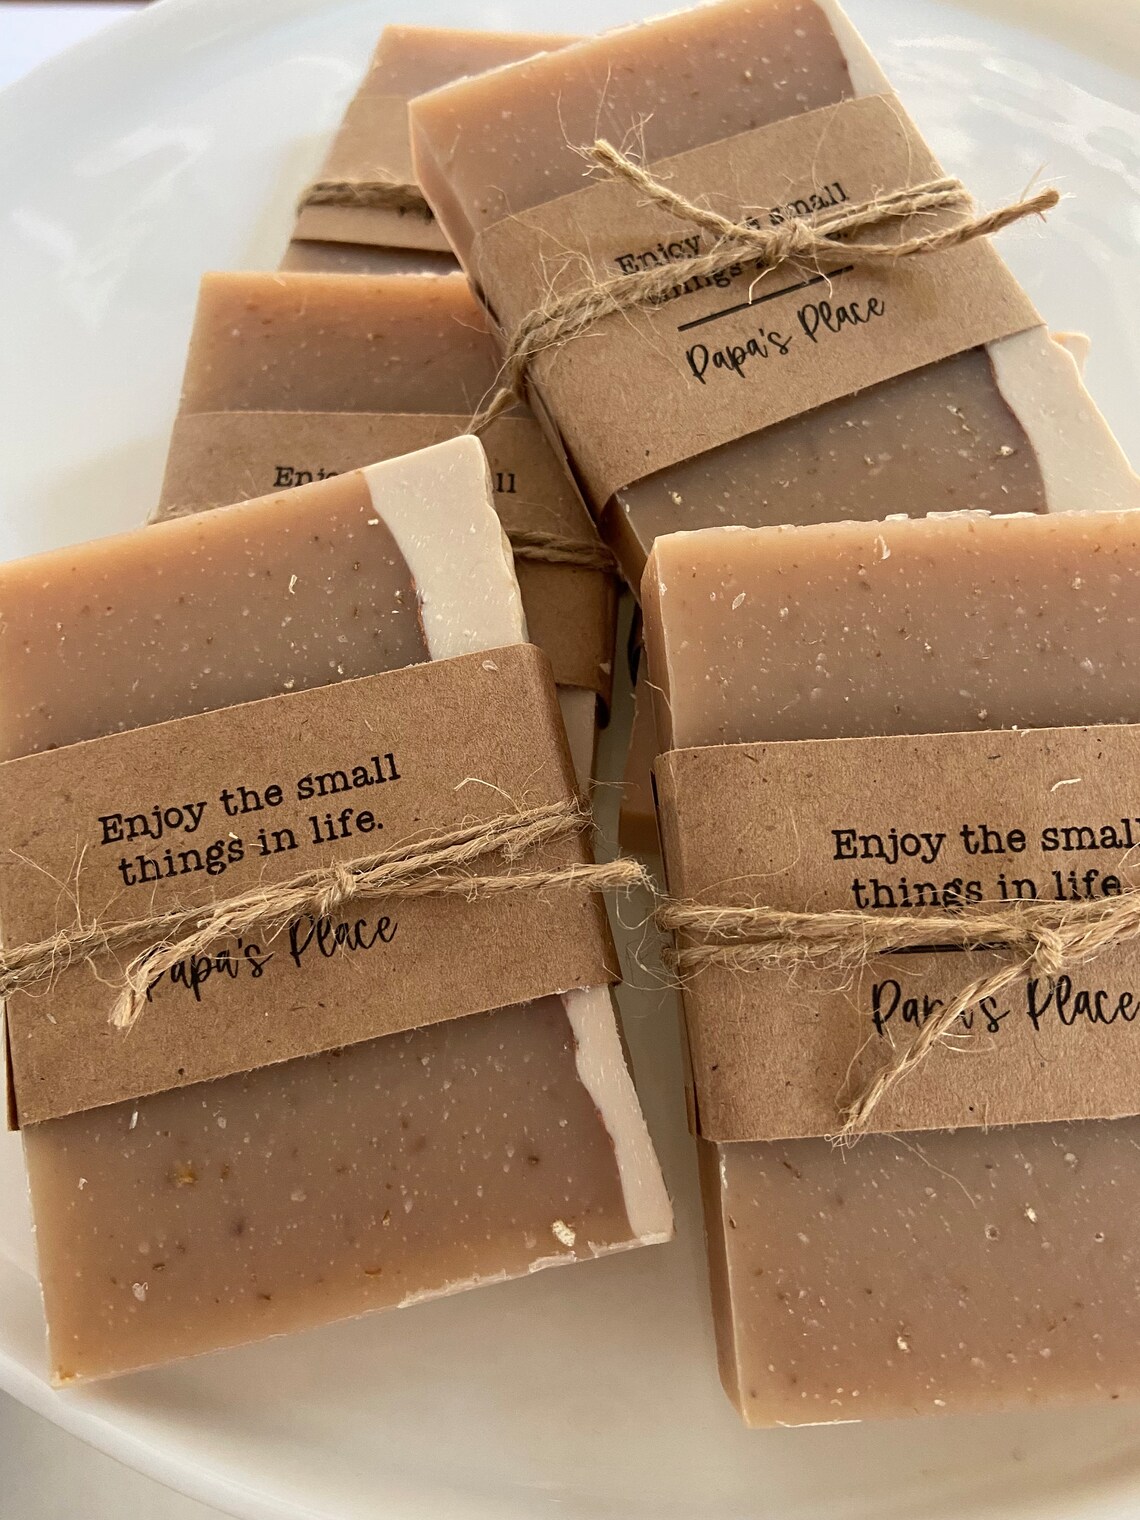 Enjoy the small
things
Papa's Place
Enjoy
Enjoy the small
things in life.
Papa's Place
Enjoy the small
things in life.
Papa's Place